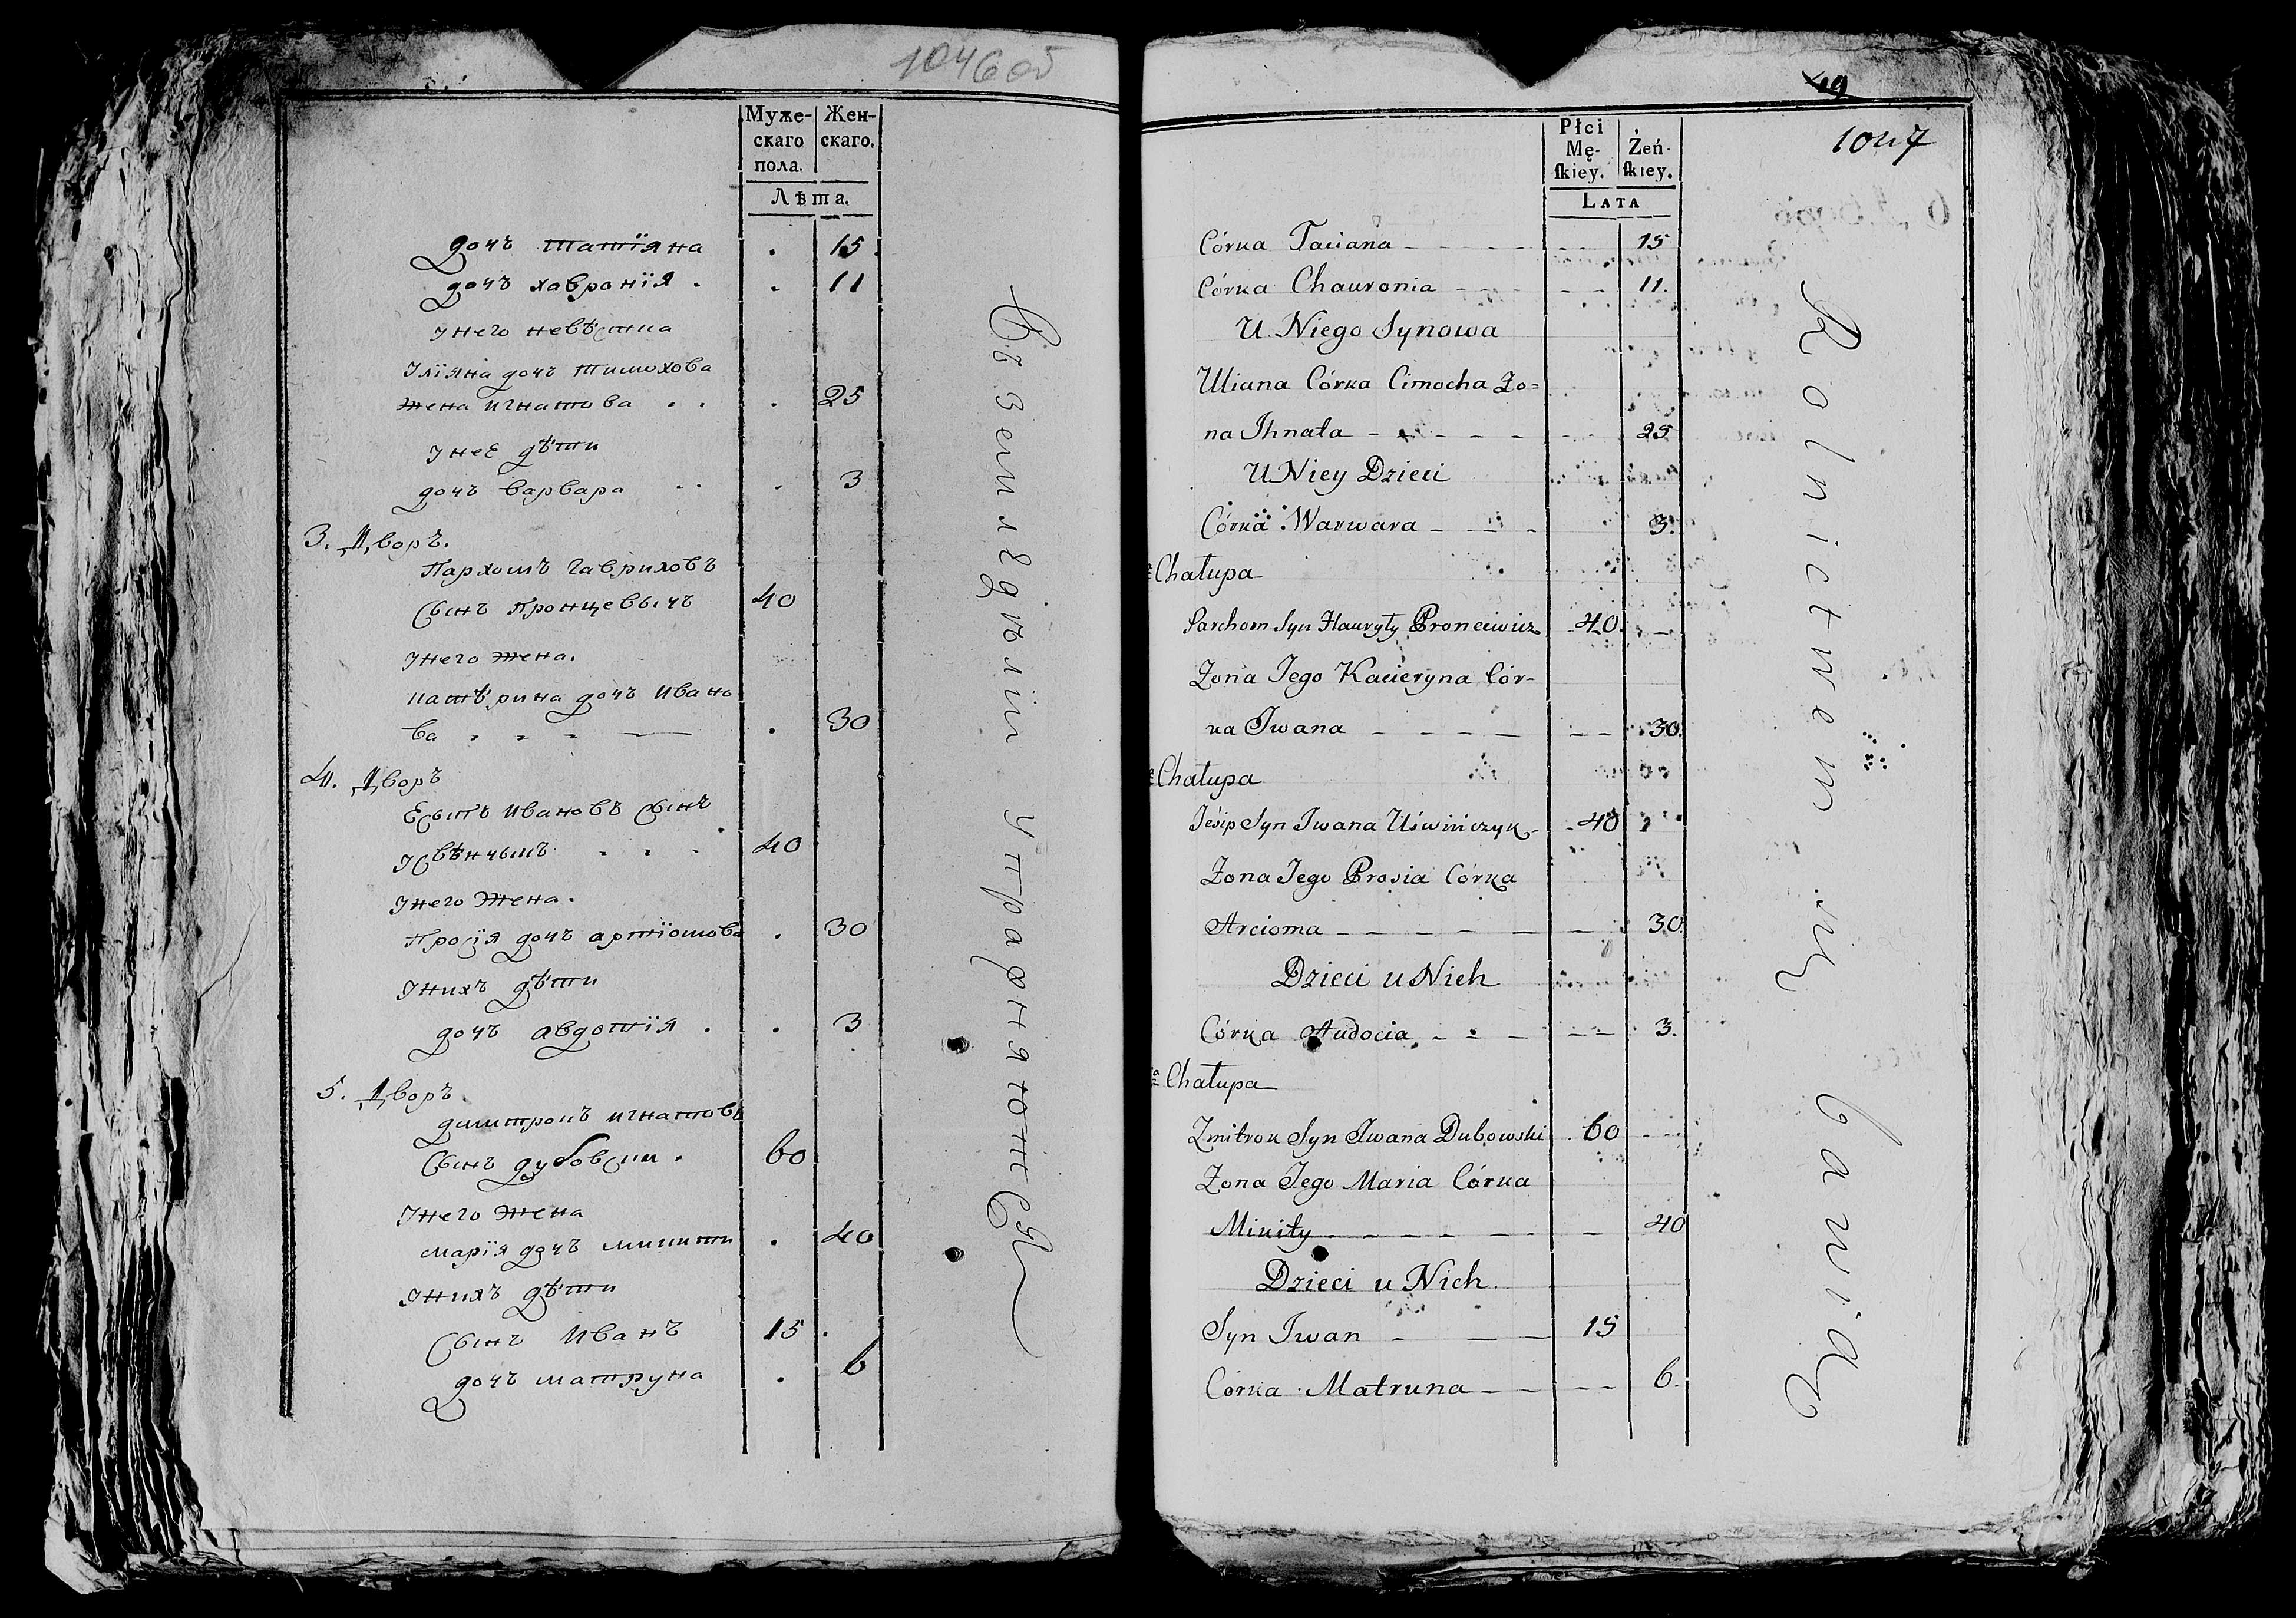 1046 об
Муже-
скаго
пола.
Жен-
скаго.
Лѣта.
дочъ татїяна . 15.
дочъ хавронїя . . 11
Інего невѣстка
Іліяна дочъ тимохова
жена игнатова . . . 25
Інеѣ дѣти
дочъ варвара . . . 3
3. Дворъ.
Пархомъ гавриловъ
Сынъ Пронцевычъ 40
Інего жена.
катѣрина дочъ Ивано
ва . 30
4. Дворъ
Есыпъ Ивановъ Сынъ
40
Інего жена.
Просія дочъ артіомова . 30
Інихъ дѣти
дочъ авдотїя . . 3
5. Дворъ
дмитрокъ игнатовъ
Сынъ дубовски . 60
Інего жена
марїя дочъ микиты . 40
Інихъ дѣти
Сынъ Иванъ 15 .
дочъ матруна . 6
Въ земледѣліи упражняются
49
1047
Płci
Mę-
ſkiey.
Żeń-
ſkiey.
LATA
Córka Taciana - - - - 15
Córka Chauronia - - - 11.
U Niego Synowa
Uliana Córka Cimocha Żo=
na Ihnata - - - - - 25
U Niey Dzieci
Córka Warwara - - - 3.
Chałupa
Parchom Syn Hauryły Proncewicz 40. -
Żona Jego Kacieryna Cór-
ka Iwana - - - - - - 30.
Chałupa
Jésip Syn Iwana Uświńczyk - 40
Żona Jego Prosia Córka
Arcioma - - - - - - 30.
Dzieci u Nich
Córka Audocia, - - - - - 3.
Chałupa
Zmitrok Syn Iwana Dubowski 60 - -
Żona Jego Maria Córka
Mikity - - - - - - - 40
Dzieci u Nich.
Syn Iwan - - - 15
Córka Matruna - - - - 6.
Rolnictwem się bawią